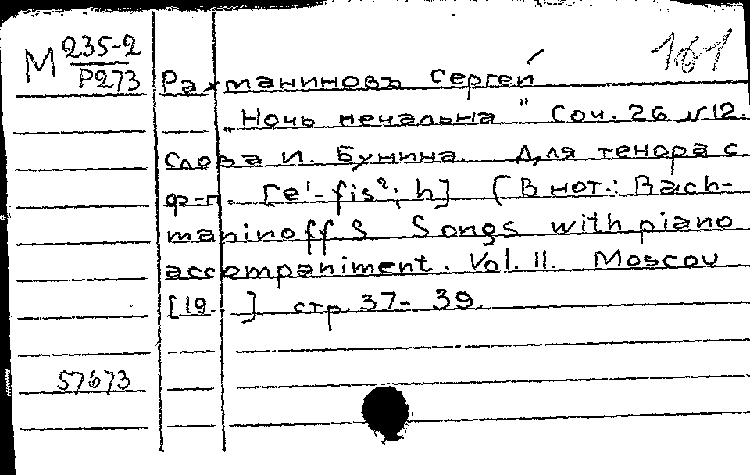 М 235-2
Р273
161
Рахманиновъ Сергей
„Ночь печальна" Соч. 26 №12.
Слова И. Бунина. Для тенора с
ф-п. [e¹-fis²; h] (В нот.: Rach-
maninoff S Songs with piano
accompaniment. Vol. II. Moscow
[19 ] стр. 37-39.
57673